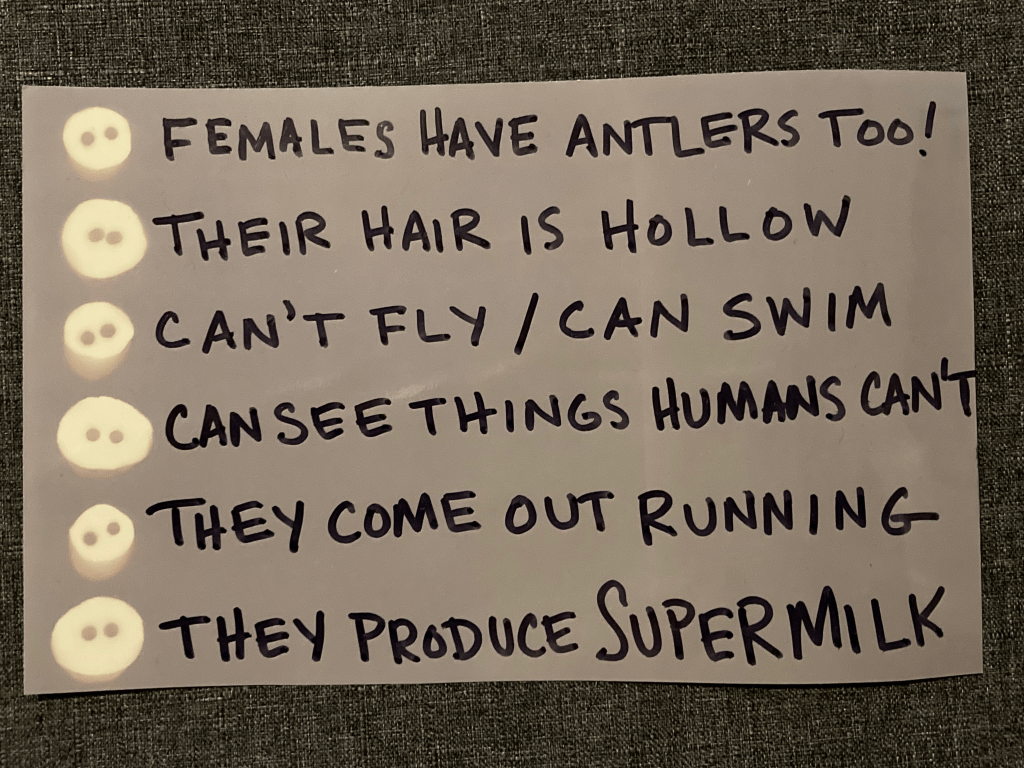 FEMALES HAVE ANTLERS TOO!
THEIR HAIR IS HOLLOW
CAN'T FLY / CAN SWIM
CAN SEE THINGS HUMANS CAN'T
THEY COME OUT RUNNING
THEY PRODUCE SUPERMILK